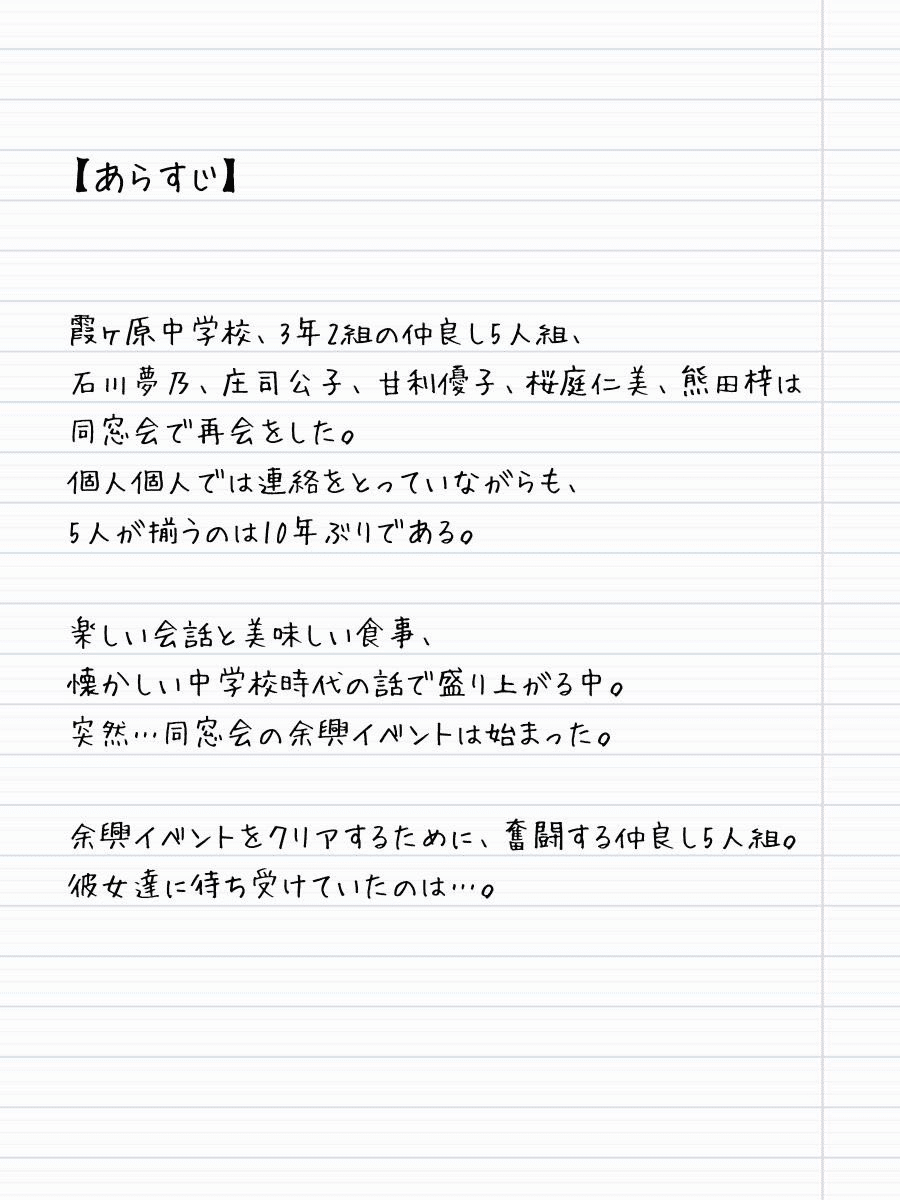 【あらすじ】
霞ヶ原中学校、3年2組の仲良し5人組、
石川夢乃、庄司公子、甘利優子、桜庭仁美、熊田梓は
同窓会で再会をした。
個人個人では連絡をとっていながらも、
5人が揃うのは10年ぶりである。
楽しい会話と美味しい食事、
懐かしい中学校時代の話で盛り上がる中。
突然…同窓会の余興イベントは始まった。
余興イベントをクリアするために、奮闘する仲良し5人組。
彼女達に待ち受けていたのは…。